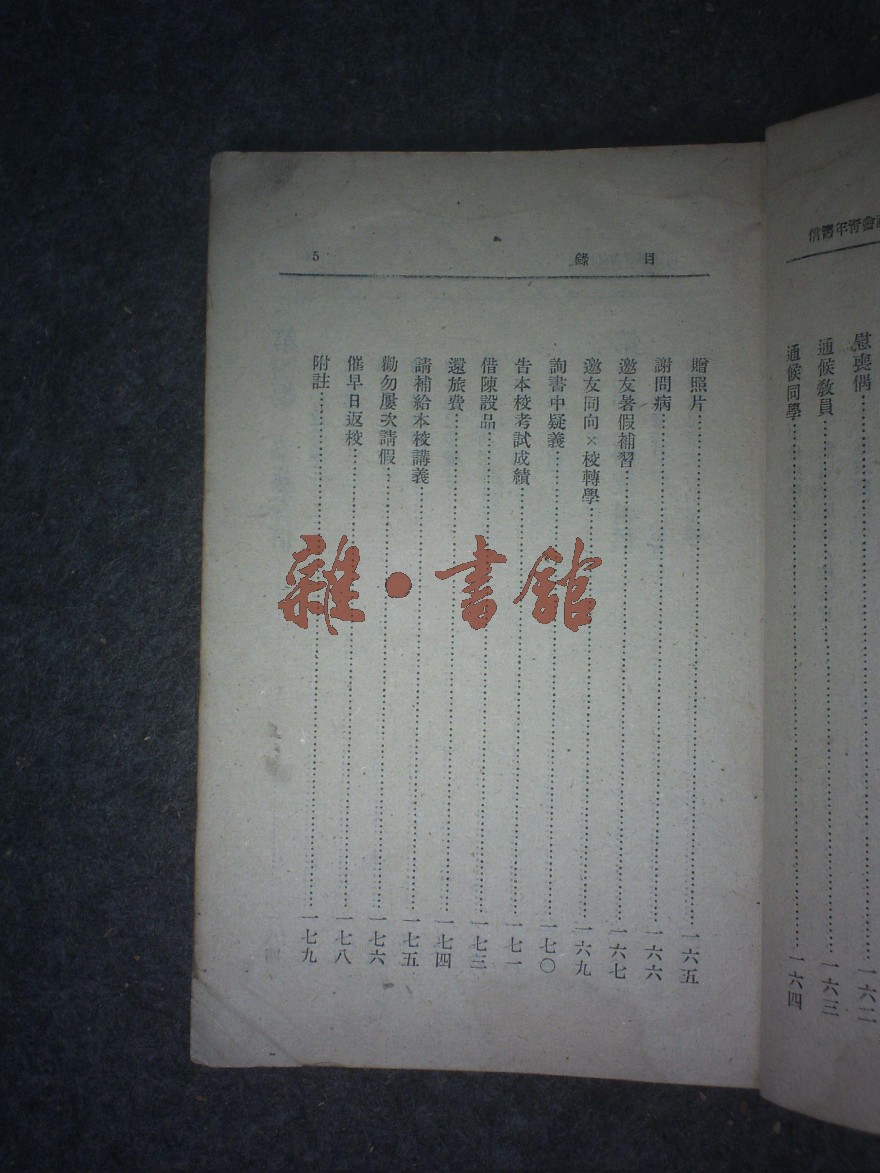 慰喪偶……一六二
通候教員……一六三
通候同學……一六四
目錄 5
贈照片……一六五
謝問病……一六六
邀友暑假補習……一六七
邀友同向×校轉學……一六九
詢書中疑義……一七〇
告本校考試成績……一七一
借陳設品……一七三
還旅費……一七四
請補給本校講義……一七五
勸勿屢次請假……一七六
催早日返校……一七八
附註……一七九
雜·書館